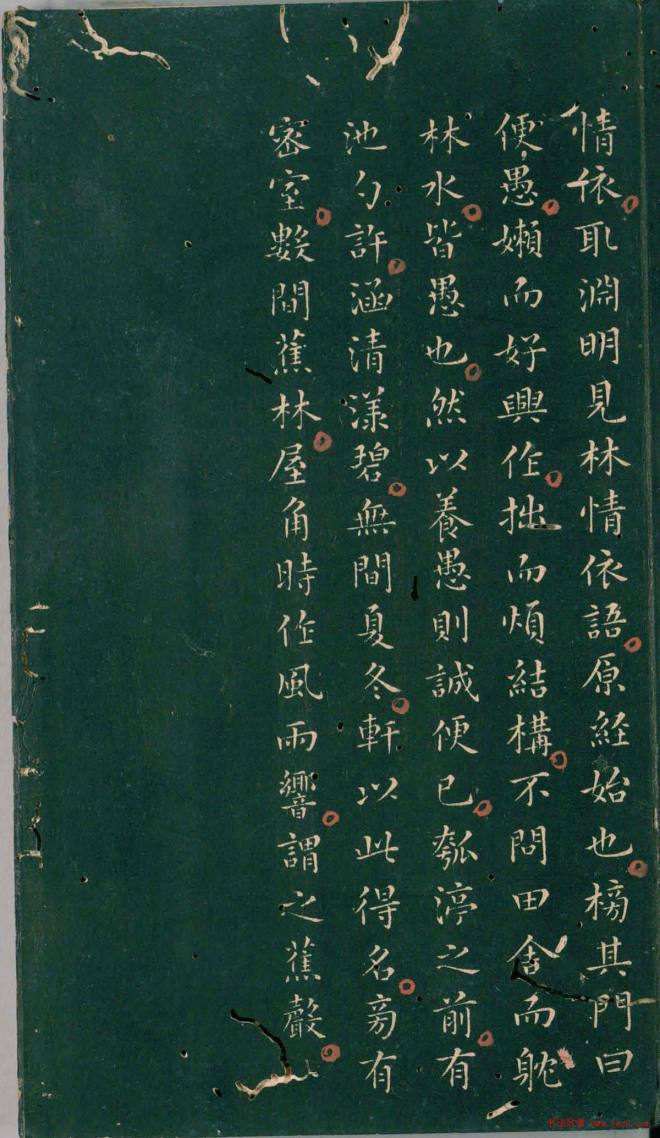 情依取淵明見林情依語原經始也榜其門曰
便愚嬾而好興作拙而煩結構不問田舍而躭
林水皆愚也然以養愚則誠便已瓠渟之前有
池勺許涵清漾碧無間夏冬軒以此得名旁有
密室數間蕉林屋角時作風雨響謂之蕉聲